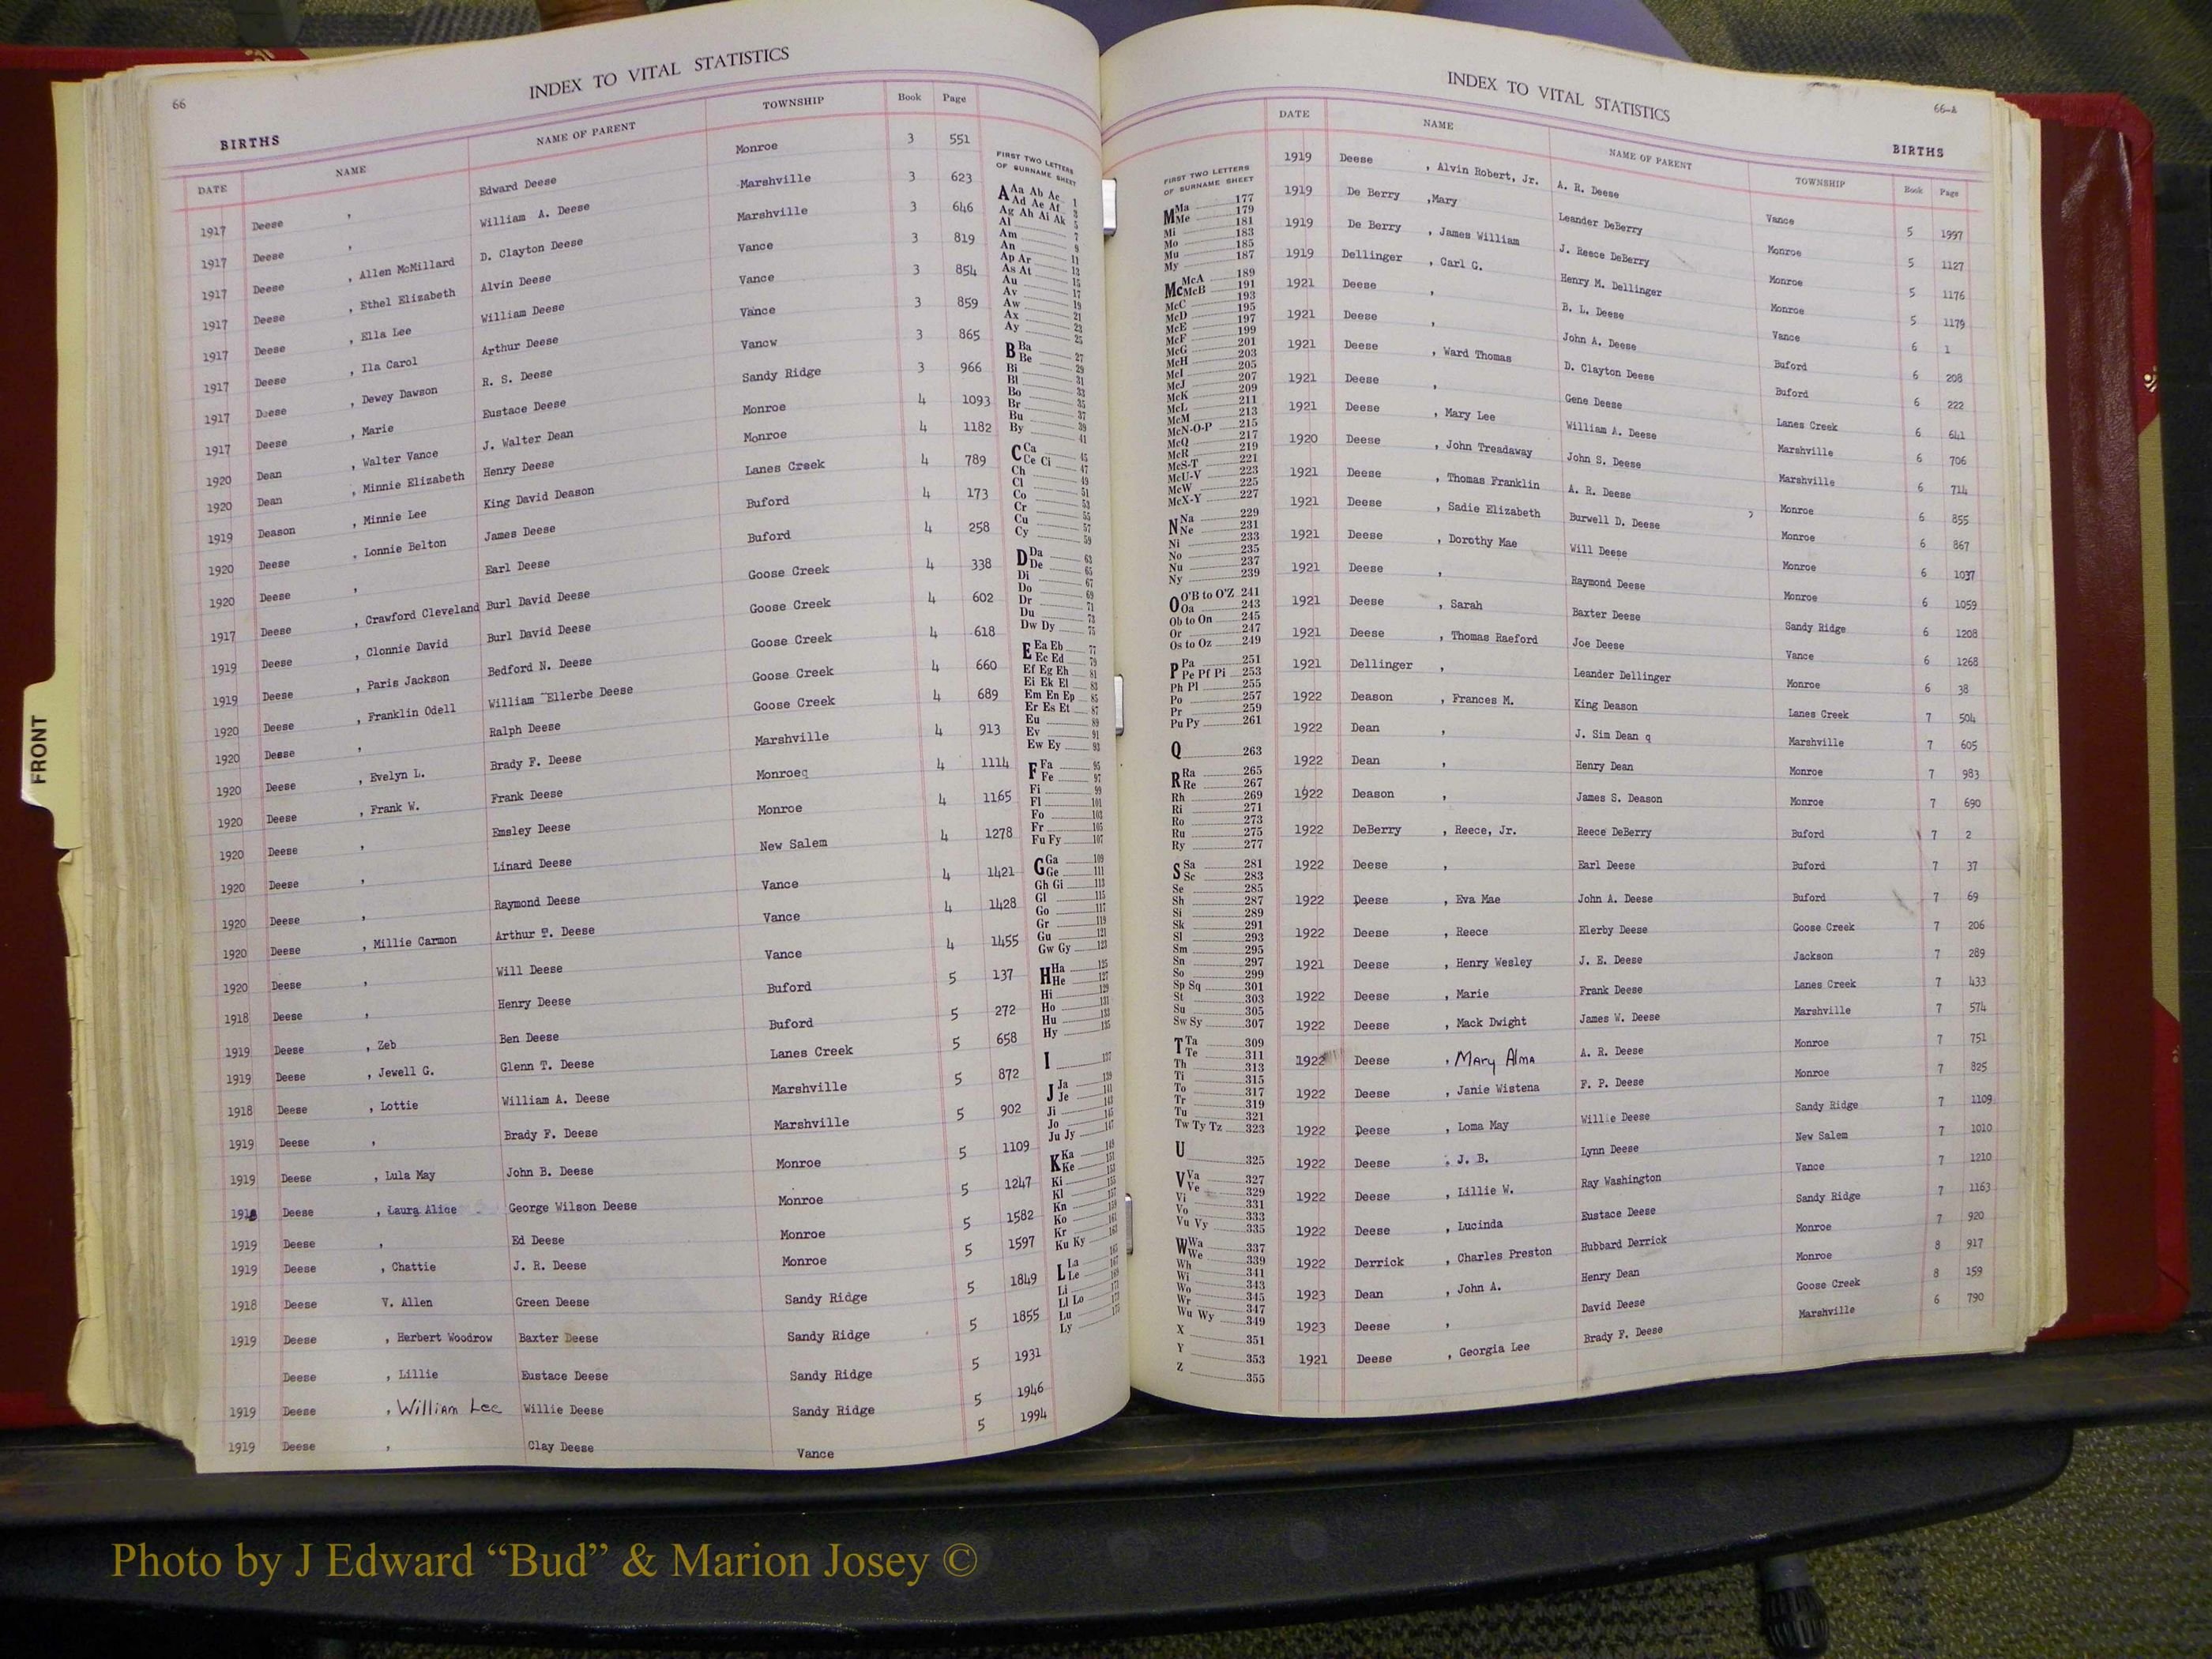 66
INDEX TO VITAL STATISTICS
BIRTHS
DATE NAME NAME OF PARENT TOWNSHIP Book Page
1917 Deese , Edward Deese Monroe 3 551
1917 Deese , William A. Deese Marshville 3 623
1917 Deese , Allen McMillard D. Clayton Deese Marshville 3 646
1917 Deese , Ethel Elizabeth Alvin Deese Vance 3 819
1917 Deese , Ella Lee William Deese Vance 3 854
1917 Deese , Ila Carol Arthur Deese Vance 3 859
1917 Deese , Dewey Dawson R. S. Deese Vancw 3 865
1917 Deese , Marie Eustace Deese Sandy Ridge 3 966
1920 Dean , Walter Vance J. Walter Dean Monroe 4 1093
1920 Dean , Minnie Elizabeth Henry Deese Monroe 4 1182
1919 Deason , Minnie Lee King David Deason Lanes Creek 4 789
1920 Deese , Lonnie Belton James Deese Buford 4 173
1920 Deese , Earl Deese Buford 4 258
1917 Deese , Crawford Cleveland Burl David Deese Goose Creek 4 338
1919 Deese , Clonnie David Burl David Deese Goose Creek 4 602
1919 Deese , Paris Jackson Bedford N. Deese Goose Creek 4 618
1920 Deese , Franklin Odell William Ellerbe Deese Goose Creek 4 660
1920 Deese , Ralph Deese Goose Creek 4 689
1920 Deese , Evelyn L. Brady F. Deese Marshville 4 913
1920 Deese , Frank W. Frank Deese Monroeq 4 1114
1920 Deese , Emsley Deese Monroe 4 1165
1920 Deese , Linard Deese New Salem 4 1278
1920 Deese , Raymond Deese Vance 4 1421
1920 Deese , Millie Carmon Arthur T. Deese Vance 4 1428
1920 Deese , Will Deese Vance 4 1455
1918 Deese , Henry Deese Buford 5 137
1919 Deese , Zeb Ben Deese Buford 5 272
1919 Deese , Jewell G. Glenn T. Deese Lanes Creek 5 658
1918 Deese , Lottie William A. Deese Marshville 5 872
1919 Deese , Brady F. Deese Marshville 5 902
1919 Deese , Lula May John B. Deese Monroe 5 1109
1918 Deese , Laura Alice George Wilson Deese Monroe 5 1247
1919 Deese , Ed Deese Monroe 5 1582
1919 Deese , Chattie J. R. Deese Monroe 5 1597
1918 Deese V. Allen Green Deese Sandy Ridge 5 1849
1919 Deese , Herbert Woodrow Baxter Deese Sandy Ridge 5 1855
Deese , Lillie Eustace Deese Sandy Ridge 5 1931
1919 Deese , William Lee Willie Deese Sandy Ridge 5 1946
1919 Deese , Clay Deese Vance 5 1994
FIRST TWO LETTERS
OF SURNAME SHEET
A Aa Ab Ac 1
Ad Ae Af 3
Ag Ah Ai Ak 5
Al 7
Am 9
An 11
Ap Ar 13
As At 15
Au 17
Av 19
Aw 21
Ax 23
Ay 25
B Ba 27
Be 29
Bi 31
Bl 33
Bo 35
Br 37
Bu 39
By 41
C Ca 45
Ce Ci 47
Ch 49
Cl 51
Co 53
Cr 55
Cu 57
Cy 59
D Da 63
De 65
Di 67
Do 69
Dr 71
Du 73
Dw Dy 75
E Ea Eb 77
Ec Ed 79
Ef Eg Eh 81
Ei Ek El 83
Em En Ep 85
Er Es Et 87
Eu 89
Ev 91
Ew Ey 93
F Fa 95
Fe 97
Fi 99
Fl 101
Fo 103
Fr 105
Fu Fy 107
G Ga 109
Ge 111
Gh Gi 113
Gl 115
Go 117
Gr 119
Gu 121
Gw Gy 123
H Ha 125
He 127
Hi 129
Ho 131
Hu 133
Hy 135
I 137
J Ja 139
Je 141
Ji 143
Jo 145
Ju Jy 147
K Ka 149
Ke 151
Ki 153
Kl 155
Kn 157
Ko 159
Kr 161
Ku Ky 163
L La 165
Le 167
Li 169
Ll Lo 171
Lu 173
Ly 175
FRONT
INDEX TO VITAL STATISTICS
66-A
BIRTHS
FIRST TWO LETTERS
OF SURNAME SHEET
M Ma 177
Me 179
Mi 181
Mo 183
Mu 185
My 187
Mc McA 189
McB 191
McC 193
McD 195
McE 197
McF 199
McG 201
McH 203
McI 205
McJ 207
McK 209
McL 211
McM 213
McN-O-P 215
McQ 217
McR 219
McS-T 221
McU-V 223
McW 225
McX-Y 227
N Na 229
Ne 231
Ni 233
No 235
Nu 237
Ny 239
O O'B to O'Z 241
Oa 243
Ob to On 245
Or 247
Os to Oz 249
P Pa 251
Pe Pf Pi 253
Ph Pl 255
Po 257
Pr 259
Pu Py 261
Q 263
R Ra 265
Re 267
Rh 269
Ri 271
Ro 273
Ru 275
Ry 277
S Sa 281
Sc 283
Se 285
Sh 287
Si 289
Sk 291
Sl 293
Sm 295
Sn 297
So 299
Sp Sq 301
St 303
Su 305
Sw Sy 307
T Ta 309
Te 311
Th 313
Ti 315
To 317
Tr 319
Tu 321
Tw Ty Tz 323
U 325
V Va 327
Ve 329
Vi 331
Vo 333
Vu Vy 335
W Wa 337
We 339
Wh 341
Wi 343
Wo 345
Wr 347
Wu Wy 349
X 351
Y 353
Z 355
DATE NAME NAME OF PARENT TOWNSHIP Book Page
1919 Deese , Alvin Robert, Jr. A. R. Deese Vance 5 1997
1919 De Berry ,Mary Leander DeBerry Monroe 5 1127
1919 De Berry , James William J. Reece DeBerry Monroe 5 1176
1919 Dellinger , Carl G. Henry M. Dellinger Monroe 5 1179
1921 Deese , B. L. Deese Vance 6 1
1921 Deese , John A. Deese Buford 6 208
1921 Deese , Ward Thomas D. Clayton Deese Buford 6 222
1921 Deese , Gene Deese Lanes Creek 6 641
1921 Deese , Mary Lee William A. Deese Marshville 6 706
1920 Deese , John Treadaway John S. Deese Marshville 6 714
1921 Deese , Thomas Franklin A. R. Deese Monroe 6 855
1921 Deese , Sadie Elizabeth Burwell D. Deese , Monroe 6 867
1921 Deese , Dorothy Mae Will Deese Monroe 6 1037
1921 Deese , Raymond Deese Monroe 6 1059
1921 Deese , Sarah Baxter Deese Sandy Ridge 6 1208
1921 Deese , Thomas Raeford Joe Deese Vance 6 1268
1921 Dellinger , Leander Dellinger Monroe 6 38
1922 Deason , Frances M. King Deason Lanes Creek 7 504
1922 Dean , J. Sim Dean q Marshville 7 605
1922 Dean , Henry Dean Monroe 7 983
1922 Deason , James S. Deason Monroe 7 690
1922 DeBerry , Reece, Jr. Reece DeBerry Buford 7 2
1922 Deese , Earl Deese Buford 7 37
1922 Deese , Eva Mae John A. Deese Buford 7 69
1922 Deese , Reece Elerby Deese Goose Creek 7 206
1921 Deese , Henry Wesley J. E. Deese Jackson 7 289
1922 Deese , Marie Frank Deese Lanes Creek 7 433
1922 Deese , Mack Dwight James W. Deese Marshville 7 574
1922 Deese , Mary Alma A. R. Deese Monroe 7 751
1922 Deese , Janie Wistena F. P. Deese Monroe 7 825
1922 Deese , Loma May Willie Deese Sandy Ridge 7 1109
1922 Deese , J. B. Lynn Deese New Salem 7 1010
1922 Deese , Lillie W. Ray Washington Vance 7 1210
1922 Deese , Lucinda Eustace Deese Sandy Ridge 7 1163
1922 Derrick , Charles Preston Hubbard Derrick Monroe 7 920
1923 Dean , John A. Henry Dean Monroe 8 917
1923 Deese , David Deese Goose Creek 8 159
1921 Deese , Georgia Lee Brady F. Deese Marshville 6 790
Photo by J Edward “Bud” & Marion Josey ©